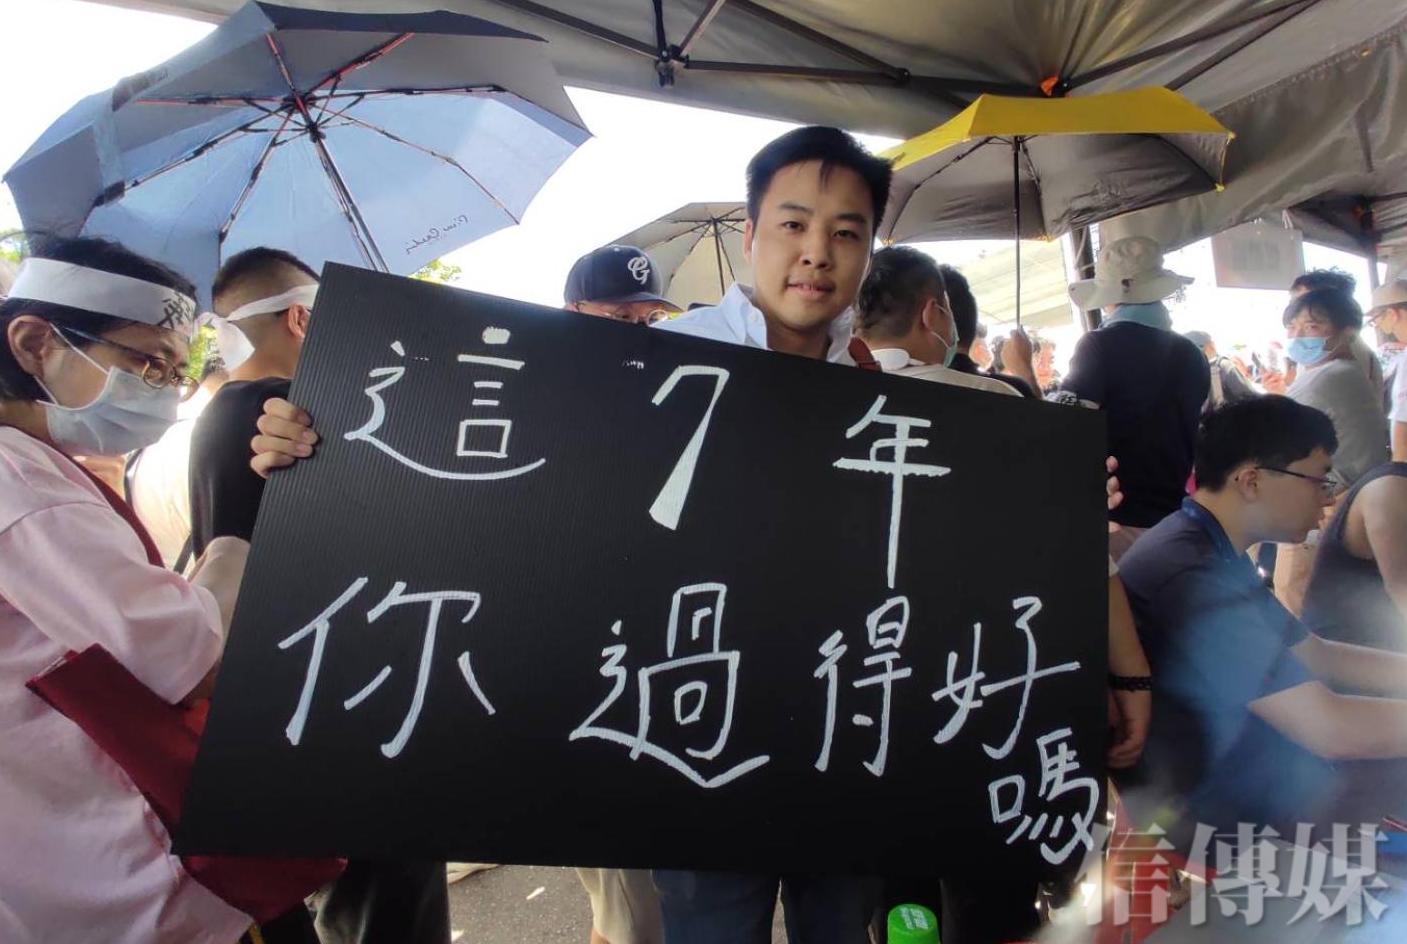 這7年
你過得好
嗎
Pierre Cardin
G
信傳媒